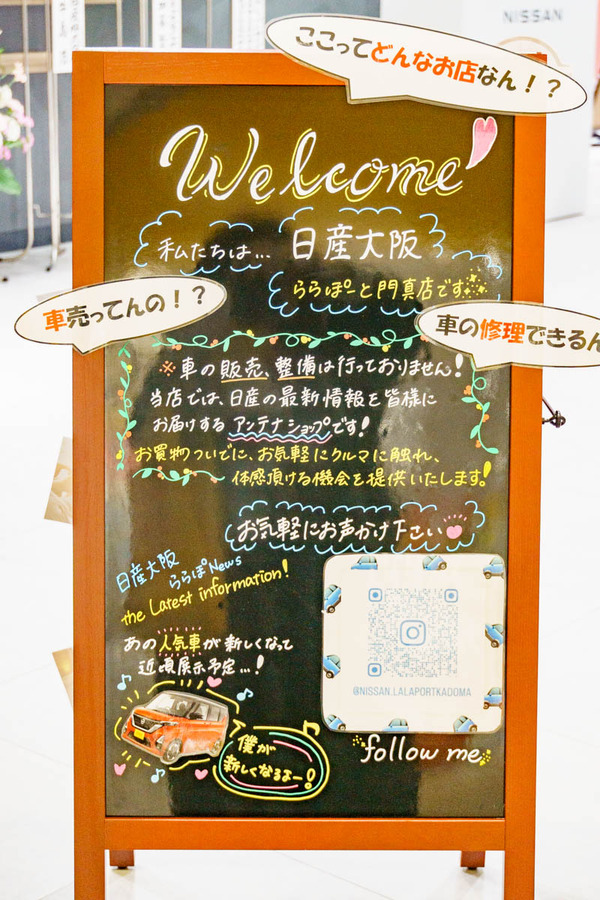 NISSAN
ここってどんなお店なん！？
Welcome
私たちは… 日産大阪
ららぽーと門真店です
車売ってんの！？
車の修理できるん
※車の販売、整備は行っておりません!
当店では、日産の最新情報を皆様に
お届けする アンテナショップです!
お買物ついでに、お気軽にクルマに触れ、
体感頂ける機会を提供いたします!
お気軽にお声かけ下さい
日産大阪 ららぽNews
the Latest information!
あの人気車が新しくなって
近頃展示予定…!
僕が
新しくなるよー!
@NISSAN.LALAPORTKADOMA
follow me